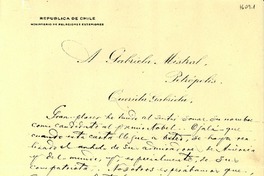 REPUBLICA DE CHILE
MINISTERIO DE RELACIONES EXTERIORES
A Gabriela Mistral.
Petrópolis.
Querida Gabriela:
Gran placer he tenido al oír sonar su nombre
como candidata al premio Nobel. Ojalá que
cuando esta carta llegue a Ud. se haya
realizado el anhelo de sus admiradores de América
y del mundo y especialmente de sus
compatriotas. Nosotros esperábamos que